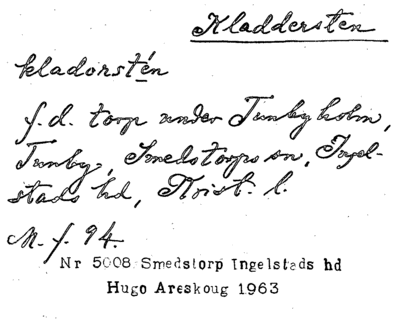 Kladdersten
kladorstén
f.d. torp under Tunbyholm,
Tunby, Smedstorps sn, Ingel-
stads hd, Krist. l.
M. f. 94.
Nr 5008 Smedstorp Ingelstads hd
Hugo Areskoug 1963